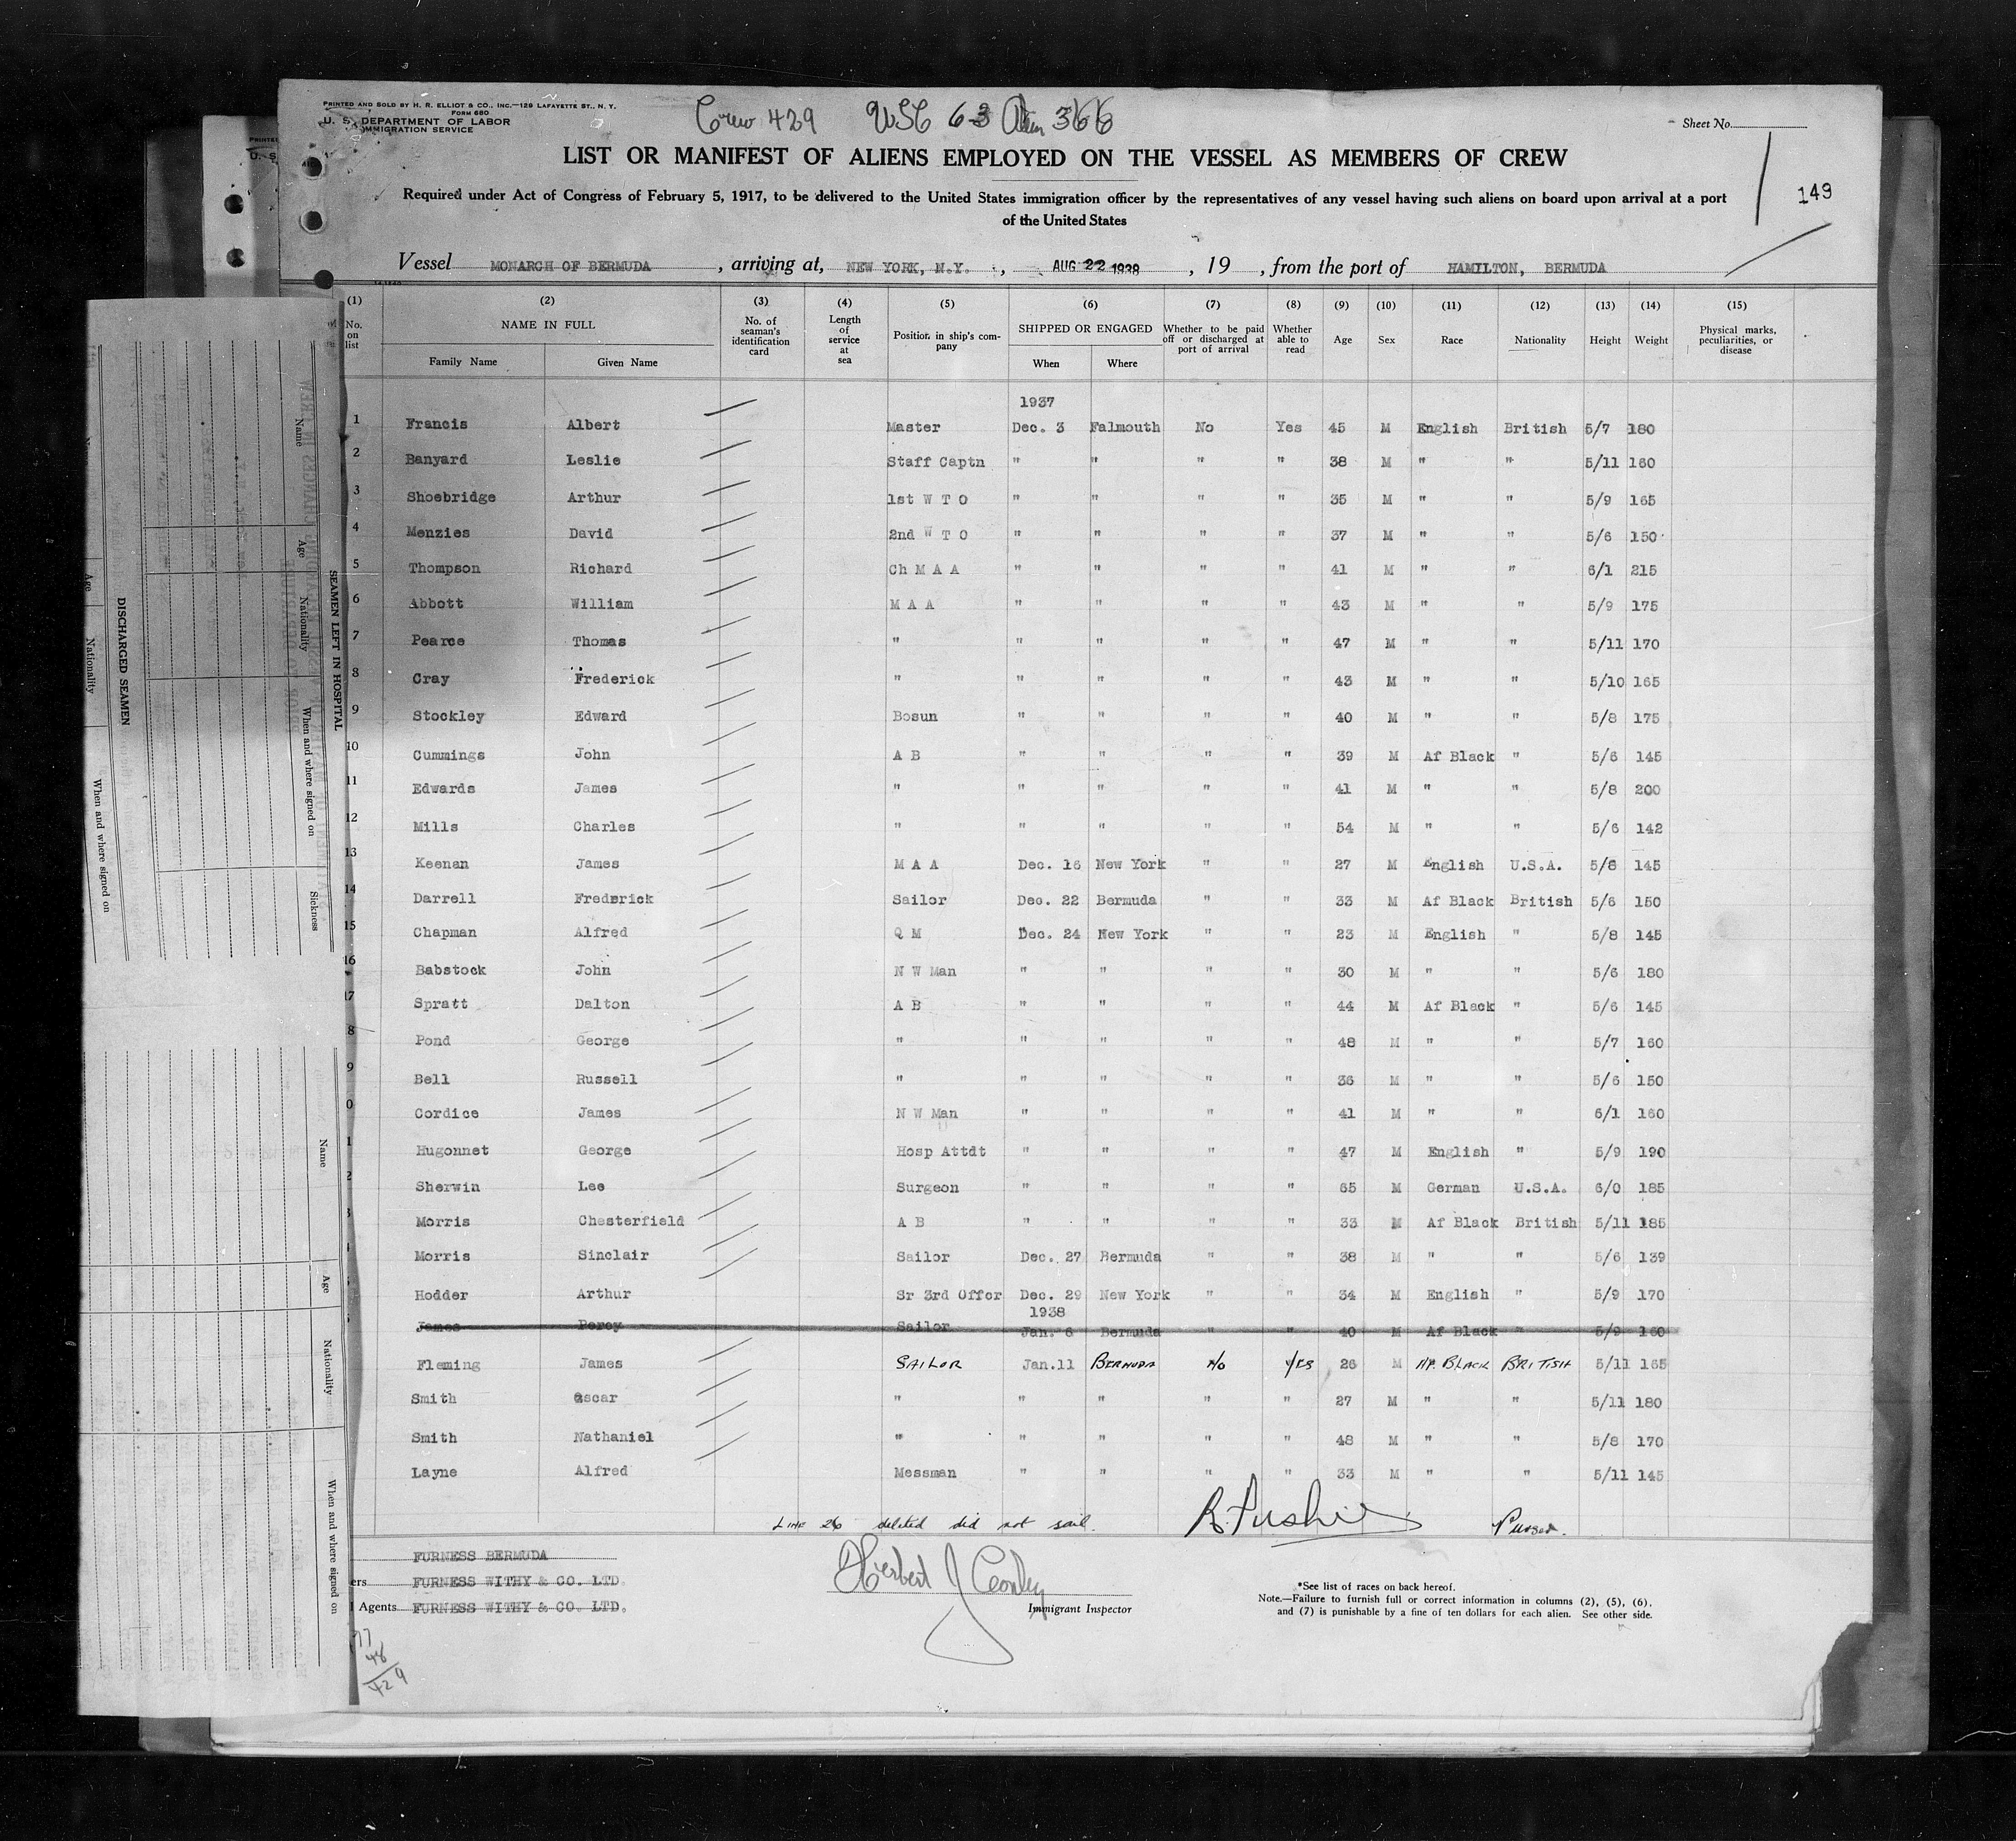 PRINTED AND SOLD BY H. R. ELLIOT & CO., INC.—129 LAFAYETTE ST., N. Y.
FORM 680
U. S. DEPARTMENT OF LABOR
IMMIGRATION SERVICE
Crew 429 USC 63 Alien 366
Sheet No.
LIST OR MANIFEST OF ALIENS EMPLOYED ON THE VESSEL AS MEMBERS OF CREW
Required under Act of Congress of February 5, 1917, to be delivered to the United States immigration officer by the representatives of any vessel having such aliens on board upon arrival at a port
of the United States
149
Vessel MONARCH OF BERMUDA , arriving at, NEW YORK, N.Y. , AUG 22 1938 , 19 , from the port of HAMILTON, BERMUDA
(1) (2) (3) (4) (5) (6) (7) (8) (9) (10) (11) (12) (13) (14) (15)
No. on list NAME IN FULL No. of seaman's identification card Length of service at sea Position in ship's company SHIPPED OR ENGAGED Whether to be paid off or discharged at port of arrival Whether able to read Age Sex Race Nationality Height Weight Physical marks, peculiarities, or disease
Family Name Given Name When Where
1937
1 Francis Albert Master Dec. 3 Falmouth No Yes 45 M English British 5/7 180
2 Banyard Leslie Staff Captn " " " " 38 M " " 5/11 160
3 Shoebridge Arthur 1st W T O " " " " 35 M " " 5/9 165
4 Menzies David 2nd W T O " " " " 37 M " " 5/6 150
5 Thompson Richard Ch M A A " " " " 41 M " " 6/1 215
6 Abbott William M A A " " " " 43 M " " 5/9 175
7 Pearce Thomas " " " " " 47 M " " 5/11 170
8 Cray Frederick " " " " " 43 M " " 5/10 165
9 Stockley Edward Bosun " " " " 40 M " " 5/8 175
10 Cummings John A B " " " " 39 M Af Black " 5/6 145
11 Edwards James " " " " " 41 M " " 5/8 200
12 Mills Charles " " " " " 54 M " " 5/6 142
13 Keenan James M A A Dec. 16 New York " " 27 M English U.S.A. 5/8 145
14 Darrell Frederick Sailor Dec. 22 Bermuda " " 33 M Af Black British 5/6 150
15 Chapman Alfred Q M Dec. 24 New York " " 23 M English " 5/8 145
16 Babstock John N W Man " " " " 30 M " " 5/6 180
17 Spratt Dalton A B " " " " 44 M Af Black " 5/6 145
8 Pond George " " " " " 48 M " " 5/7 160
9 Bell Russell " " " " " 36 M " " 5/6 150
0 Cordice James N W Man " " " " 41 M " " 6/1 160
1 Hugonnet George Hosp Attdt " " " " 47 M English " 5/9 190
2 Sherwin Lee Surgeon " " " " 65 M German U.S.A. 6/0 185
3 Morris Chesterfield A B " " " " 33 M Af Black British 5/11 185
Morris Sinclair Sailor Dec. 27 Bermuda " " 38 M " " 5/6 139
Hodder Arthur Sr 3rd Offcr Dec. 29 New York " " 34 M English " 5/9 170
1938
James Percy Sailor Jan. 6 Bermuda " " 40 M Af Black " 5/9 160
Fleming James SAILOR Jan.11 BERMUDA No YES 26 M AF. BLACK BRITISH 5/11 165
Smith Oscar " " " " " 27 M " " 5/11 180
Smith Nathaniel " " " " " 48 M " " 5/8 170
Layne Alfred Messman " " " " 33 M " " 5/11 145
LINE 26 deleted did not sail. Purser.
FURNESS BERMUDA
ers FURNESS WITHY & CO. LTD.
Agents FURNESS WITHY & CO. LTD.
Herbert J
Immigrant Inspector
*See list of races on back hereof.
Note.—Failure to furnish full or correct information in columns (2), (5), (6),
and (7) is punishable by a fine of ten dollars for each alien. See other side.
77
48
429
SEAMEN LEFT IN HOSPITAL
Name Age Nationality When and where signed on Sickness
DISCHARGED SEAMEN
Age Nationality When and where signed on
Name Age Nationality When and where signed on